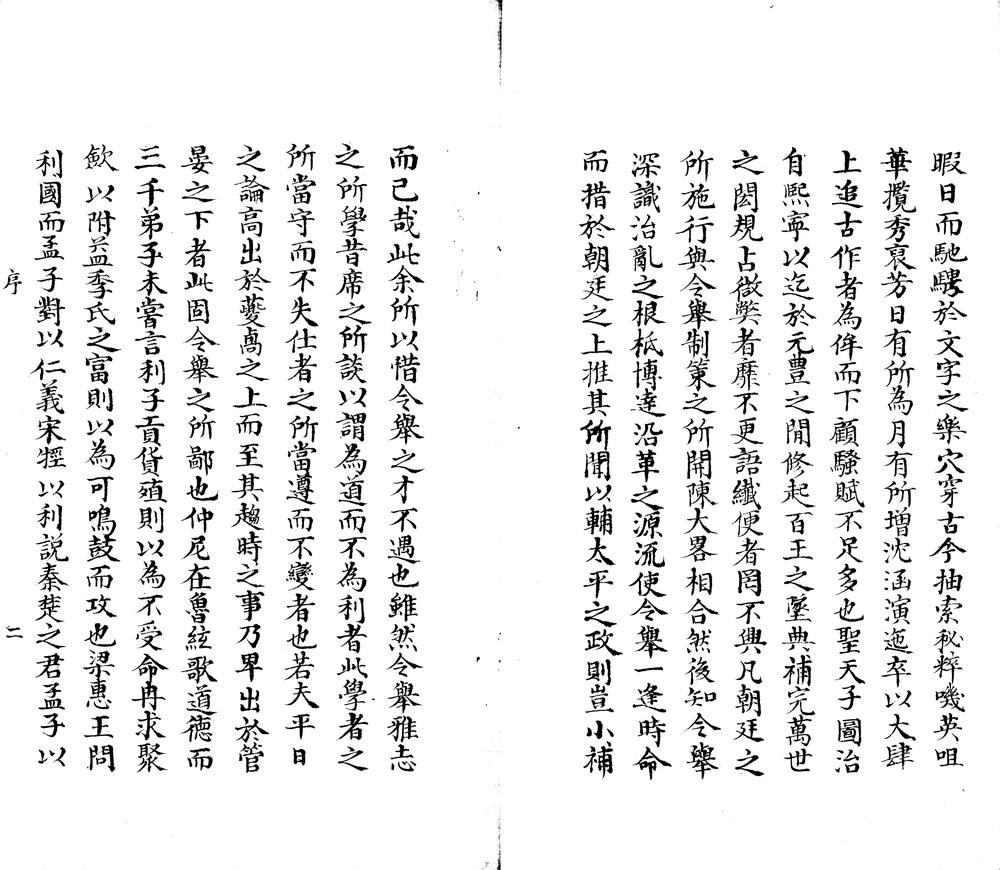 暇日而馳騁於文字之樂穴穿古今抽索秘粹嘰英咀
華攬秀裒芳日有所為月有所增沈涵演迤卒以大肆
上追古作者為侔而下顧騷賦不足多也聖天子圖治
自熙寧以迄於元豐之閒修起百王之墜典補完萬世
之閎規占微獘者靡不更語纖便者罔不興凡朝廷之
所施行與令舉制策之所開陳大畧相合然後知令舉
深識治亂之根柢博達沿革之源流使令舉一逢時命
而措於朝廷之上推其所聞以輔太平之政則豈小補
而已哉此余所以惜令舉之才不遇也雖然令舉雅志
之所學昔席之所談以謂為道而不為利者此學者之
所當守而不失仕者之所當遵而不變者也若夫平日
之論高出於夔卨之上而至其趨時之事乃卑出於管
晏之下者此固令舉之所鄙也仲尼在魯絃歌道德而
三千弟子未嘗言利子貢貨殖則以為不受命冉求聚
歛以附益季氏之富則以為可鳴鼓而攻也梁惠王問
利國而孟子對以仁義宋牼以利説秦楚之君孟子以
序
二